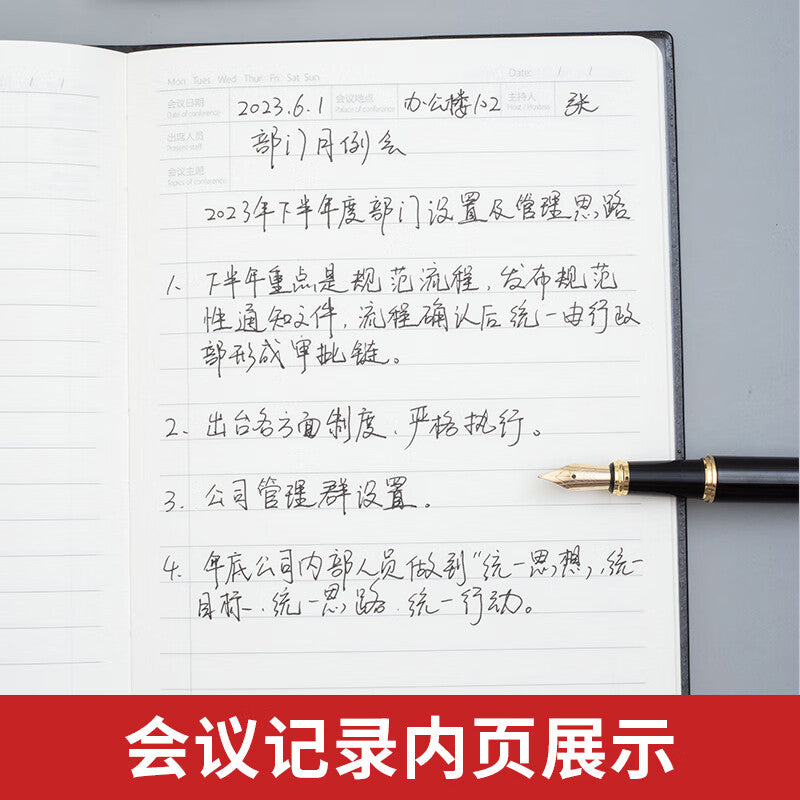 Mon Tues Wed Thur Fri Sat Sun Date: / /
会议日期 2023.6.1 会议地点 办公楼102 主持人 张
Date of conference Palace of conference Host / Hostess
出席人员 部门月例会
Present staff
会议主题
Topics of conference
2023年下半年度部门设置及管理思路
1. 下半年重点是规范流程,发布规范
性通知文件,流程确认后统一由行政
部形成审批链。
2. 出台各方面制度、严格执行。
3. 公司管理群设置。
4. 年底公司内部人员做到"统一思想、统一
目标、统一思路、统一行动。
会议记录内页展示